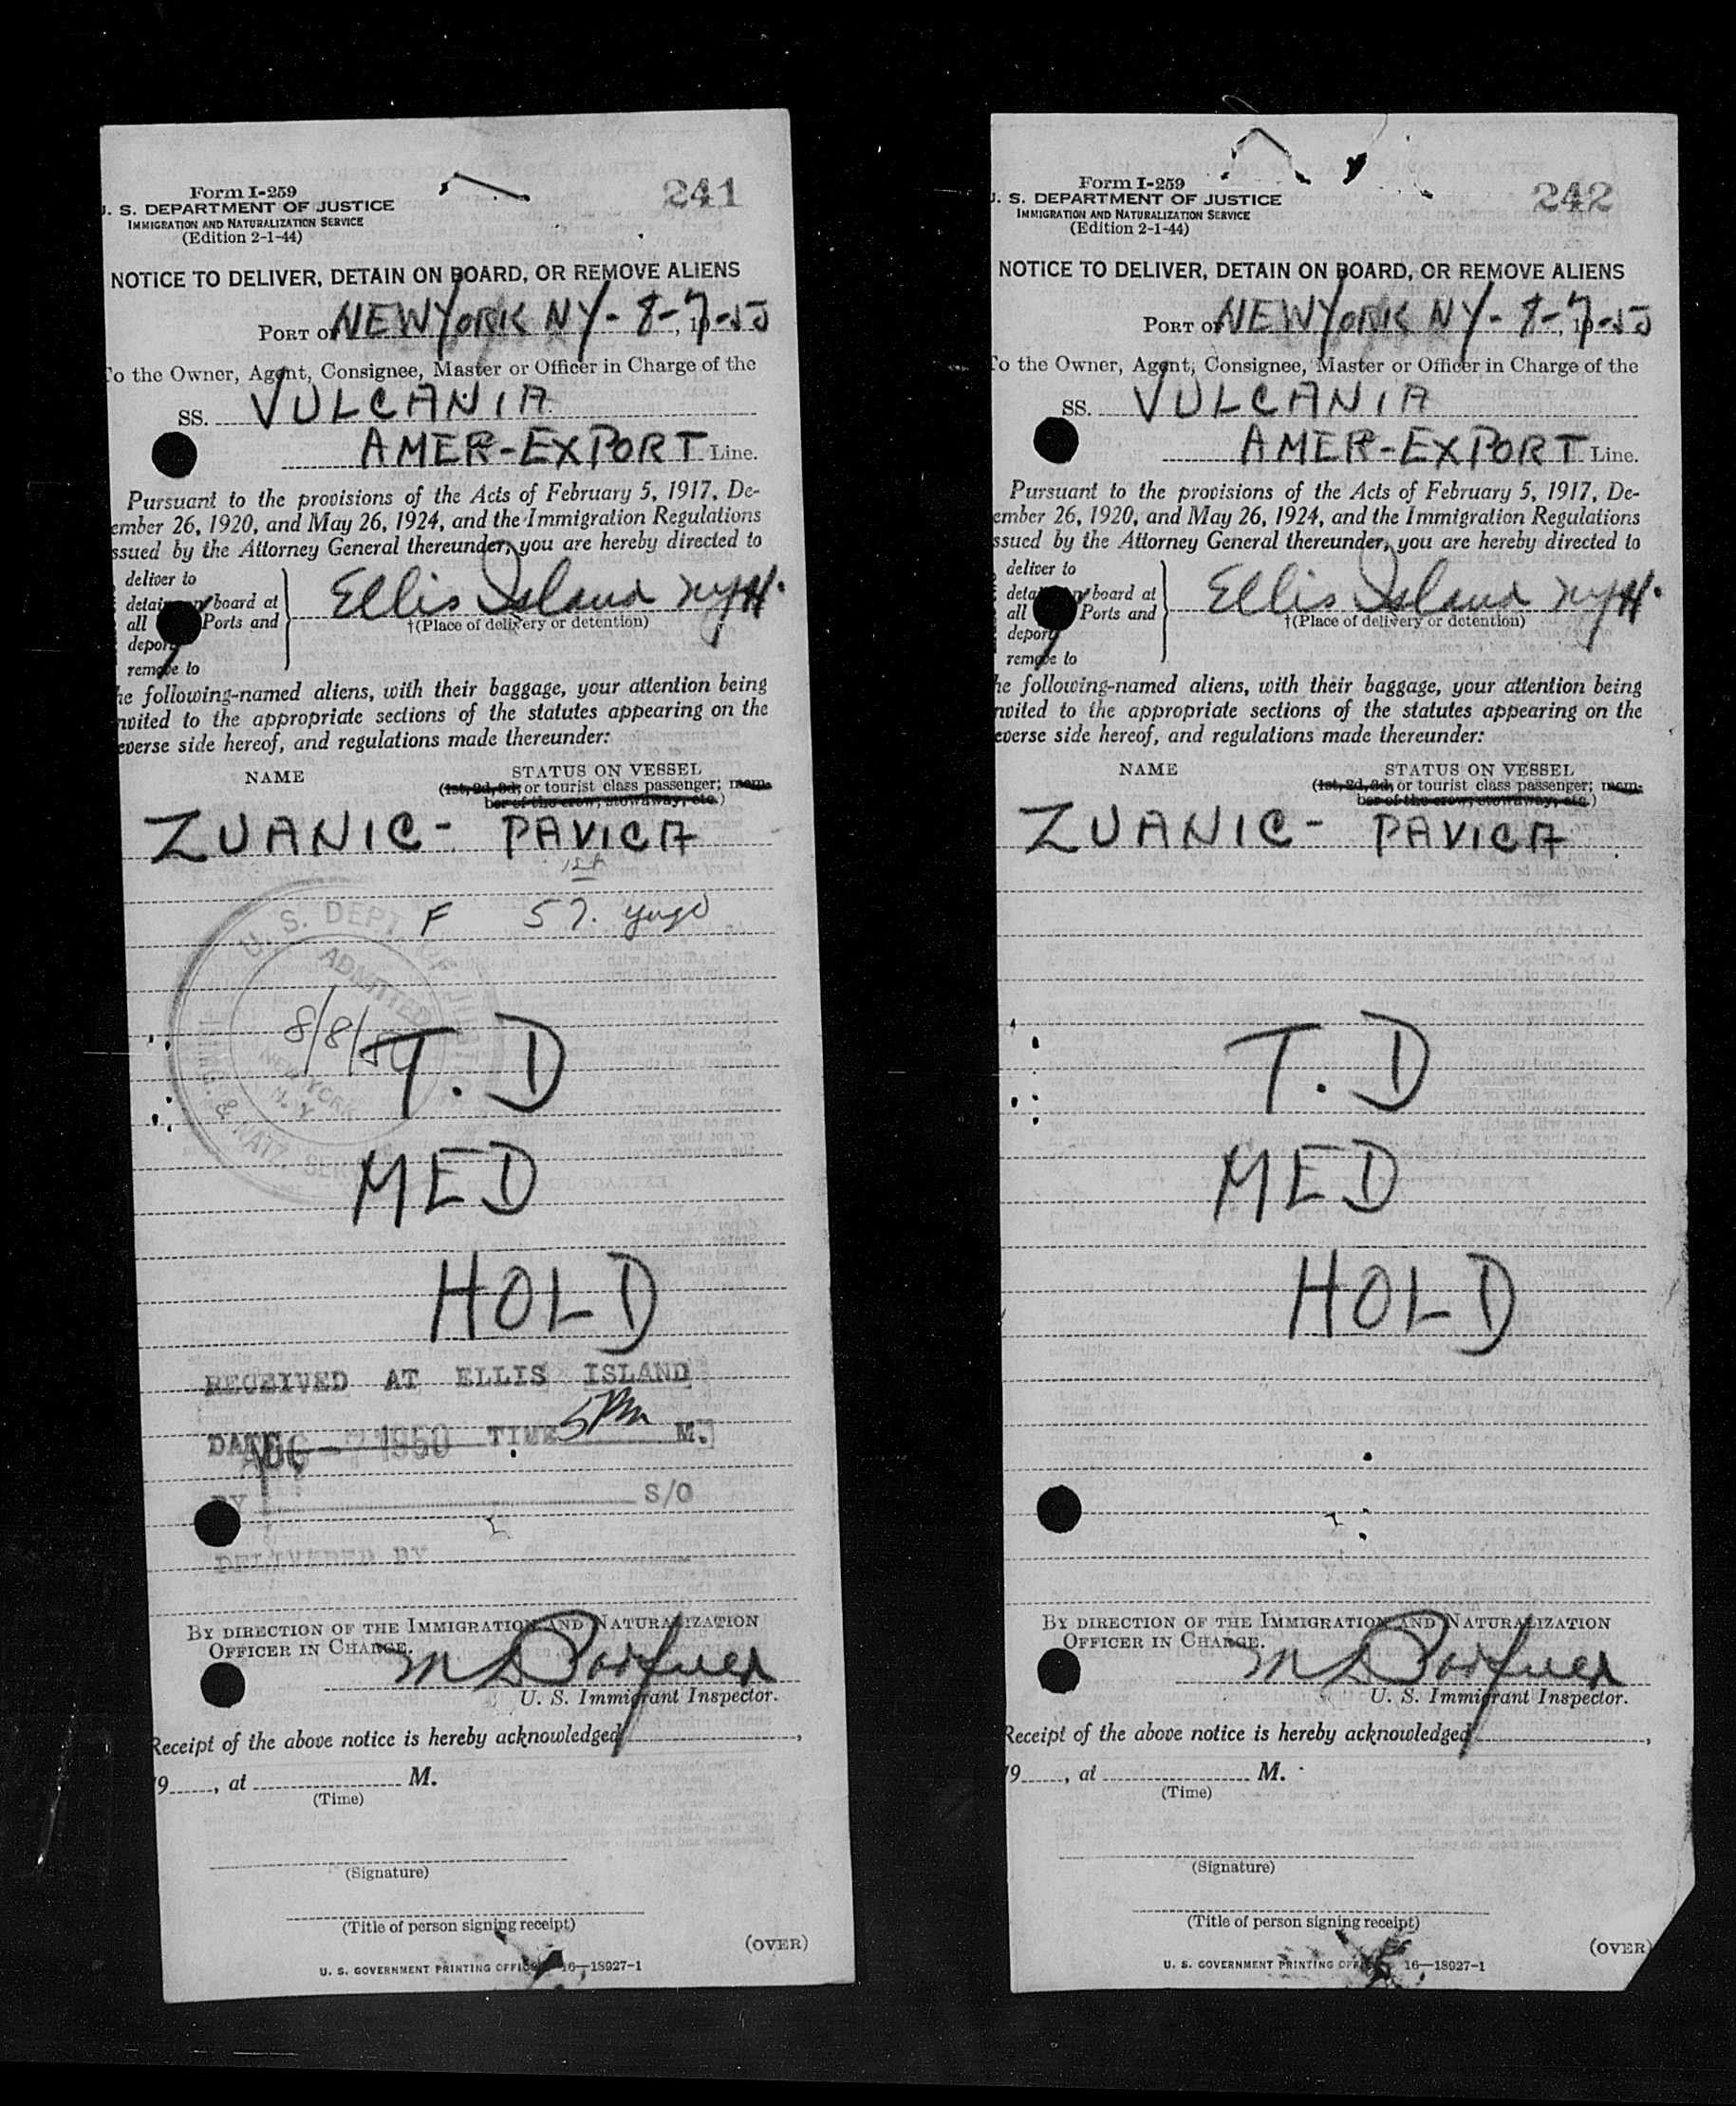 Form I-259
U. S. DEPARTMENT OF JUSTICE
IMMIGRATION AND NATURALIZATION SERVICE
(Edition 2-1-44)
241
NOTICE TO DELIVER, DETAIN ON BOARD, OR REMOVE ALIENS
PORT OF NEW YORK NY - 8-7-50
To the Owner, Agent, Consignee, Master or Officer in Charge of the
SS. VULCANIA
AMER-EXPORT Line.
Pursuant to the provisions of the Acts of February 5, 1917, De-
ember 26, 1920, and May 26, 1924, and the Immigration Regulations
ssued by the Attorney General thereunder, you are hereby directed to
deliver to
detain on board at
all Ports and
deport
remove to
Ellis Island NYH.
†(Place of delivery or detention)
he following-named aliens, with their baggage, your attention being
nvited to the appropriate sections of the statutes appearing on the
everse side hereof, and regulations made thereunder:
NAME STATUS ON VESSEL
(1st, 2d, 3d, or tourist class passenger; mem-
ber of the crew, stowaway, etc.)
ZUANIC - PAVICA
F 57. yugo
U. S. DEPT. OF JUSTICE
ADMITTED
8/8/50
NEW YORK
N. Y.
IMMIG. & NATZ. SERVICE
T. D
MED
HOLD
RECEIVED AT ELLIS ISLAND
DATE AUG - 7 1950 TIME 5PM M.
BY S/O
DELIVERED BY
BY DIRECTION OF THE IMMIGRATION AND NATURALIZATION
OFFICER IN CHARGE.
U. S. Immigrant Inspector.
Receipt of the above notice is hereby acknowledged ,
19 , at M.
(Time)
(Signature)
(Title of person signing receipt)
(OVER)
U. S. GOVERNMENT PRINTING OFFICE 16—18927-1
Form I-259
U. S. DEPARTMENT OF JUSTICE
IMMIGRATION AND NATURALIZATION SERVICE
(Edition 2-1-44)
242
NOTICE TO DELIVER, DETAIN ON BOARD, OR REMOVE ALIENS
PORT OF NEW YORK NY - 8-7-50
To the Owner, Agent, Consignee, Master or Officer in Charge of the
SS. VULCANIA
AMER-EXPORT Line.
Pursuant to the provisions of the Acts of February 5, 1917, De-
ember 26, 1920, and May 26, 1924, and the Immigration Regulations
ssued by the Attorney General thereunder, you are hereby directed to
deliver to
detain on board at
all Ports and
deport
remove to
Ellis Island NYH.
†(Place of delivery or detention)
he following-named aliens, with their baggage, your attention being
nvited to the appropriate sections of the statutes appearing on the
everse side hereof, and regulations made thereunder:
NAME STATUS ON VESSEL
(1st, 2d, 3d, or tourist class passenger; mem-
ber of the crew, stowaway, etc.)
ZUANIC - PAVICA
T. D
MED
HOLD
BY DIRECTION OF THE IMMIGRATION AND NATURALIZATION
OFFICER IN CHARGE.
U. S. Immigrant Inspector.
Receipt of the above notice is hereby acknowledged ,
19 , at M.
(Time)
(Signature)
(Title of person signing receipt)
(OVER)
U. S. GOVERNMENT PRINTING OFFICE 16—18927-1